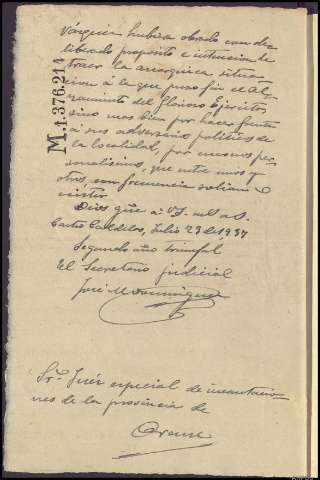 M.1.376.214
Vázquez hubiera obrado con de-
liberado proposito e intencion de
traer la anarquica situa-
cion á la que puso fin el Al-
zamiento del Glorioso Ejercito
sino mas bien por hacer frente
á sus adversarios politicos de
la localidad, por mesmos per-
sonalismos, que entre unos y
otros, con frecuencia solian
existir
Dios gûe á V.S. m. a s.
Castro Caldelas, Julio 23 de 1937
Segundo año triunfal
El Secretario judicial
José M Dominguez
Sr. Juez especial de incautacio-
nes de la provincia de
Orense